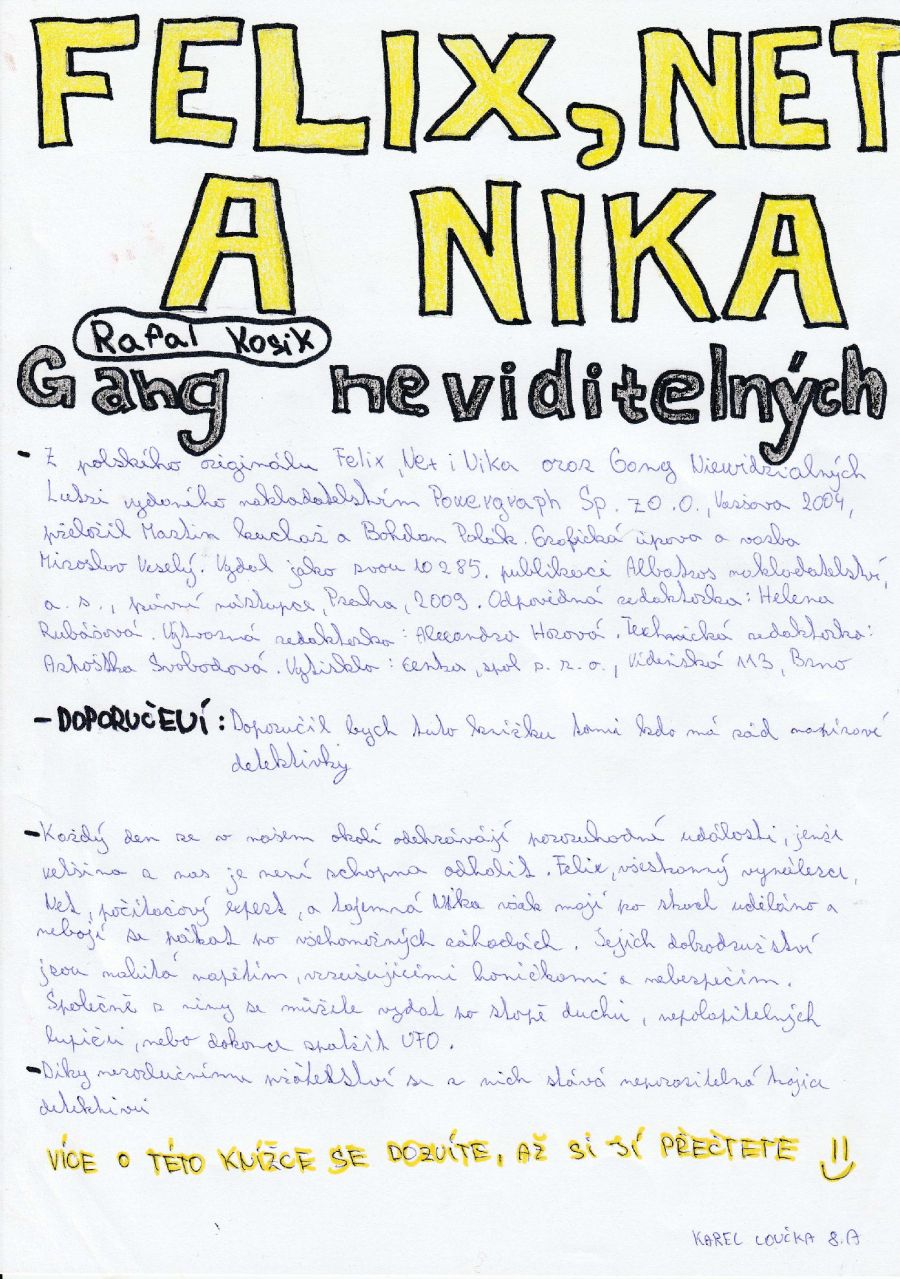 FELIX, NET
A NIKA
Rafal Kosik
Gang neviditelných
- Z polského originálu Felix, Net i Nika oraz Gang Niewidzialných
Ludzi vydaného nakladatelstvím Powergraph Sp. z O.O., Varšova 2004,
přeložil Martin a Bohdan Grafická úprava a vazba
Miroslav Veselý. Vydal jako svou 10 285. publikaci Albatros nakladatelství,
a.s., právní nástupce, Praha, 2009. Odpovědná redaktorka: Helena
Rubášová. Výtvarná redaktorka: Alexandra Horová. Technická redaktorka:
Arnoštka Svobodová. Vytisklo: Centa, spol s.r.o., Vídeňská 113, Brno
- DOPORUČENÍ: Doporučil bych tuto knížku tomu kdo má rád napínavé
detektivky
- Každý den se v našem okolí odehrávájí pozoruhodné události, jenže
většina z nas je není schopna odhalit. Felix, všestranný vynálezce,
Net, počítačový expert, a tajemná Nika však mají po strach uděláno a
nebojí se pátrat po všehomožných záhadách. Jejich dobrodružství
jsou nabitá napětím, vzrušujícími honičkami a nebezpečím.
Společně s nimy se můžete vydat po stopě duchů, nepolapitelných
lupičů, nebo dokonce spatřit UFO.
- Díky nerozlučnímu přátelství se z nich stává neporazitelná trojice
detektivů
VÍCE O TÉTO KNÍŽCE SE DOZVÍTE, AŽ SI JÍ PŘEČTETE
KAREL LOUČKA 8.A